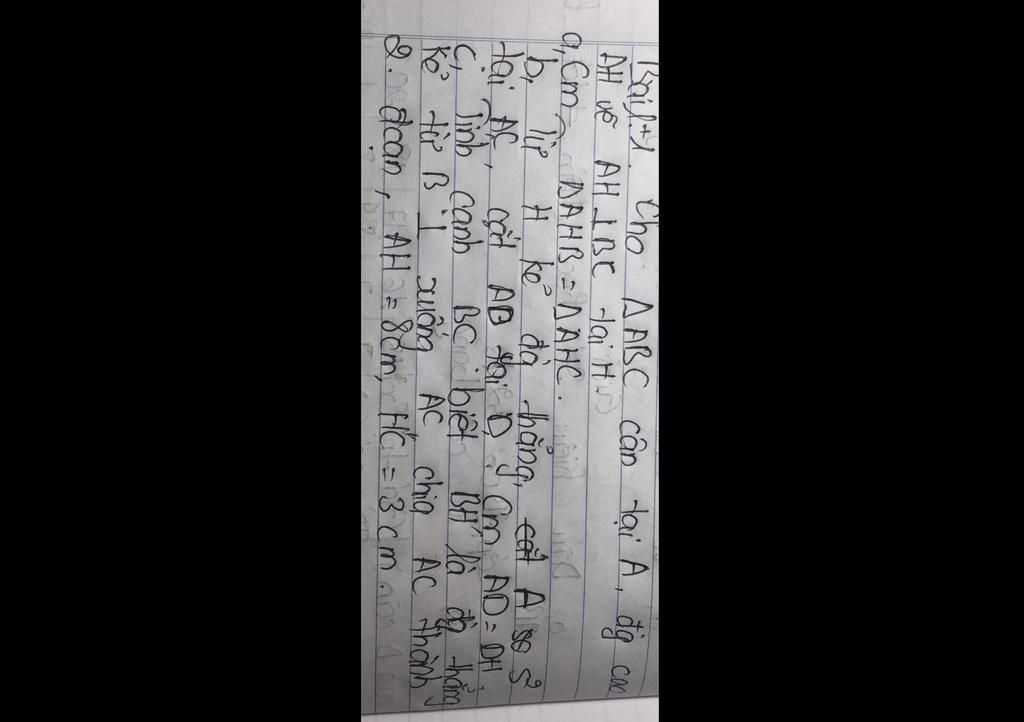 Bài 1. Cho ΔABC cân tại A, đg cao
AH vẽ AH ⊥ BC tại H
a, Cm ΔAHB = ΔAHC.
b, Từ H kẻ đg thẳng, cắt A so g
tại AC, cắt AB tại D, Cm AD = DH
c, Tính cạnh BC biết BH' là đg thẳng
kẻ từ B ⊥ xuống AC chia AC thành
2. đoạn, AH = 8cm, H'C = 3cm.